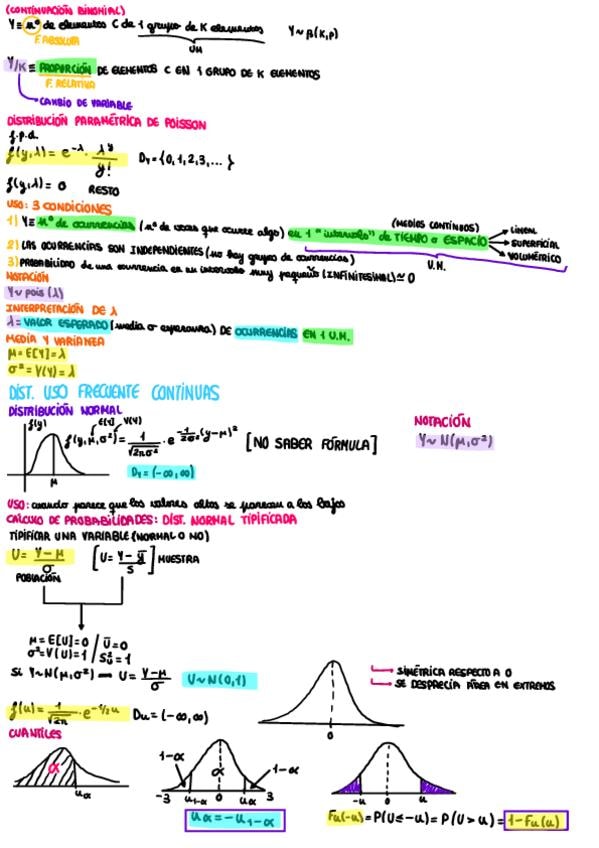 (CONTINUACIÓN BINOMIAL)
Y≡ nº de elementos C de 1 grupo de K elementos Y~β(K,p)
F. ABSOLUTA
UM
Y/K ≡ PROPORCIÓN DE ELEMENTOS C EN 1 GRUPO DE K ELEMENTOS
F. RELATIVA
CAMBIO DE VARIABLE
DISTRIBUCIÓN PARAMÉTRICA DE POISSON
f.p.d.
f(y,λ) = e^-λ · λ^y / y! Dy = {0,1,2,3,... }
f(y,λ) = 0 RESTO
USO: 3 CONDICIONES
1) Y≡ nº de ocurrencias (nº de veces que ocurre algo) en 1 "intervalo" de TIEMPO o ESPACIO
(MEDIOS CONTINUOS)
LINEAL
SUPERFICIAL
VOLUMÉTRICO
U.M.
2) LAS OCURRENCIAS SON INDEPENDIENTES (no hay grupos de ocurrencias)
3) PROBABILIDAD de una ocurrencia en un intervalo muy pequeño (INFINITESIMAL) ≃ 0
NOTACIÓN
Y~ pois (λ)
INTERPRETACIÓN DE λ
λ = VALOR ESPERADO (media o esperanza) DE OCURRENCIAS EN 1 U.M.
MEDIA Y VARIANZA
μ = E[Y] = λ
σ² = V(Y) = λ
DIST. USO FRECUENTE CONTINUAS
DISTRIBUCIÓN NORMAL
f(y)
E[Y] V(Y)
f(y,μ,σ²) = 1/√2πσ² · e^-1/2σ²(y-μ)² [NO SABER FÓRMULA]
μ
Dy = (-∞,∞)
NOTACIÓN
Y~ N(μ,σ²)
USO: cuando parece que los valores altos se parecen a los bajos
CÁLCULO DE PROBABILIDADES: DIST. NORMAL TIPIFICADA
TIPIFICAR UNA VARIABLE (NORMAL O NO)
U = Y-μ / σ [U = Y-ȳ / S] MUESTRA
POBLACIÓN
μ = E[U] = 0 / Ū = 0
σ² = V(U) = 1 / S²u = 1
Si Y~N(μ,σ²) ⟹ U = Y-μ / σ U~N(0,1)
SIMÉTRICA RESPECTO A 0
SE DESPRECIA ÁREA EN EXTREMOS
0
f(u) = 1/√2π · e^-1/2u Du = (-∞,∞)
CUANTILES
α
uα
1-α α 1-α
-3 u1-α 0 uα 3
uα = -u1-α
-u 0 u
Fu(-u) = P(U≤-u) = P(U>u) = 1-Fu(u)